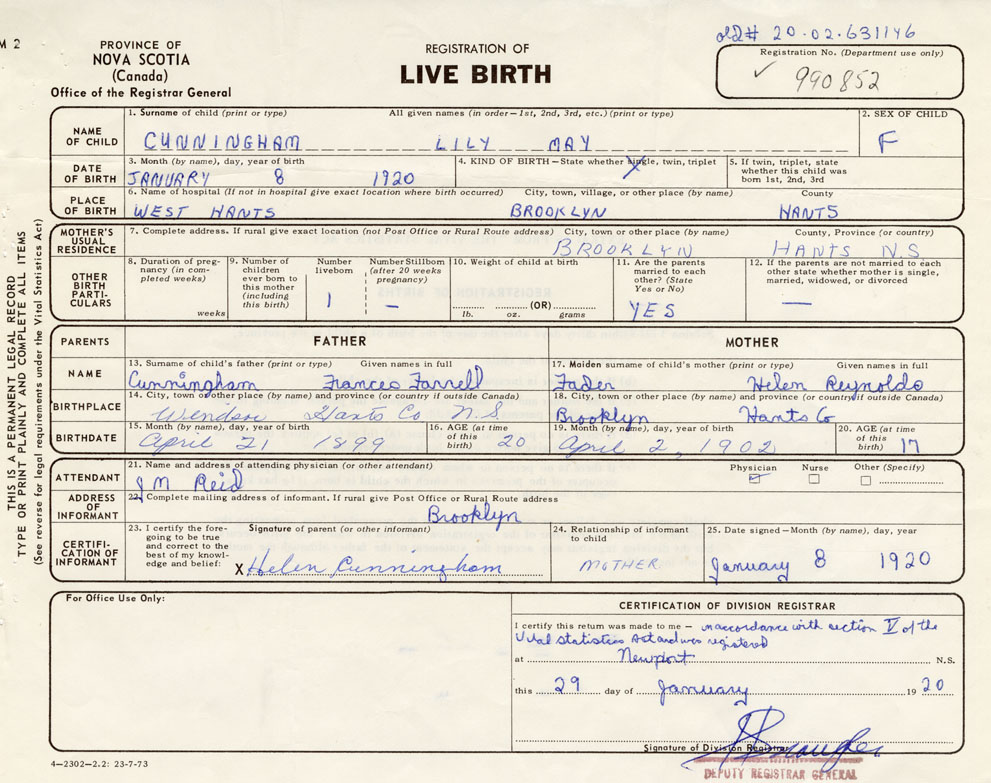 M 2
old# 20-02-631146
PROVINCE OF
NOVA SCOTIA
(Canada)
Office of the Registrar General
REGISTRATION OF
LIVE BIRTH
Registration No. (Department use only)
✓ 990852
NAME OF CHILD
1. Surname of child (print or type) All given names (in order—1st, 2nd, 3rd, etc.) (print or type)
CUNNINGHAM LILY MAY
2. SEX OF CHILD
F
DATE OF BIRTH
3. Month (by name), day, year of birth
JANUARY 8 1920
4. KIND OF BIRTH—State whether single, twin, triplet
5. If twin, triplet, state
whether this child was
born 1st, 2nd, 3rd
PLACE OF BIRTH
6. Name of hospital (If not in hospital give exact location where birth occurred) City, town, village, or other place (by name) County
WEST HANTS BROOKLYN HANTS
MOTHER'S USUAL RESIDENCE
7. Complete address. If rural give exact location (not Post Office or Rural Route address) City, town or other place (by name) County, Province (or country)
BROOKLYN HANTS N.S
OTHER BIRTH PARTICULARS
8. Duration of preg-
nancy (in com-
pleted weeks)
weeks
9. Number of
children
ever born to
this mother
(including
this birth)
Number
liveborn
1
Number Stillborn
(after 20 weeks
pregnancy)
–
10. Weight of child at birth
(OR)
lb. oz. grams
11. Are the parents
married to each
other? (State
Yes or No)
YES
12. If the parents are not married to each
other state whether mother is single,
married, widowed, or divorced
—
PARENTS FATHER MOTHER
NAME
13. Surname of child's father (print or type) Given names in full
Cunningham Frances Farrell
17. Maiden surname of child's mother (print or type) Given names in full
Fader Helen Reynolds
BIRTHPLACE
14. City, town or other place (by name) and province (or country if outside Canada)
Windsor Hants Co N.S
18. City, town or other place (by name) and province (or country if outside Canada)
Brooklyn Hants Co
BIRTHDATE
15. Month (by name), day, year of birth
April 21 1899
16. AGE (at time
of this
birth) 20
19. Month (by name), day, year of birth
April 2, 1902
20. AGE (at time
of this
birth) 17
ATTENDANT
21. Name and address of attending physician (or other attendant)
J M Reid
Physician Nurse Other (Specify)
ADDRESS OF INFORMANT
22. Complete mailing address of informant. If rural give Post Office or Rural Route address
Brooklyn
CERTIFI-CATION OF INFORMANT
23. I certify the fore-
going to be true
and correct to the
best of my knowl-
edge and belief:
Signature of parent (or other informant)
X Helen Cunningham
24. Relationship of informant
to child
MOTHER
25. Date signed—Month (by name), day, year
January 8 1920
For Office Use Only:
CERTIFICATION OF DIVISION REGISTRAR
I certify this return was made to me – in accordance with section V of the
Vital Statistics Act and was registered
at Newport N.S.
this 29 day of January 1920
Signature of Division Registrar
DEPUTY REGISTRAR GENERAL
4—2302—2.2: 23-7-73
THIS IS A PERMANENT LEGAL RECORD
TYPE OR PRINT PLAINLY AND COMPLETE ALL ITEMS
(See reverse for legal requirements under the Vital Statistics Act)